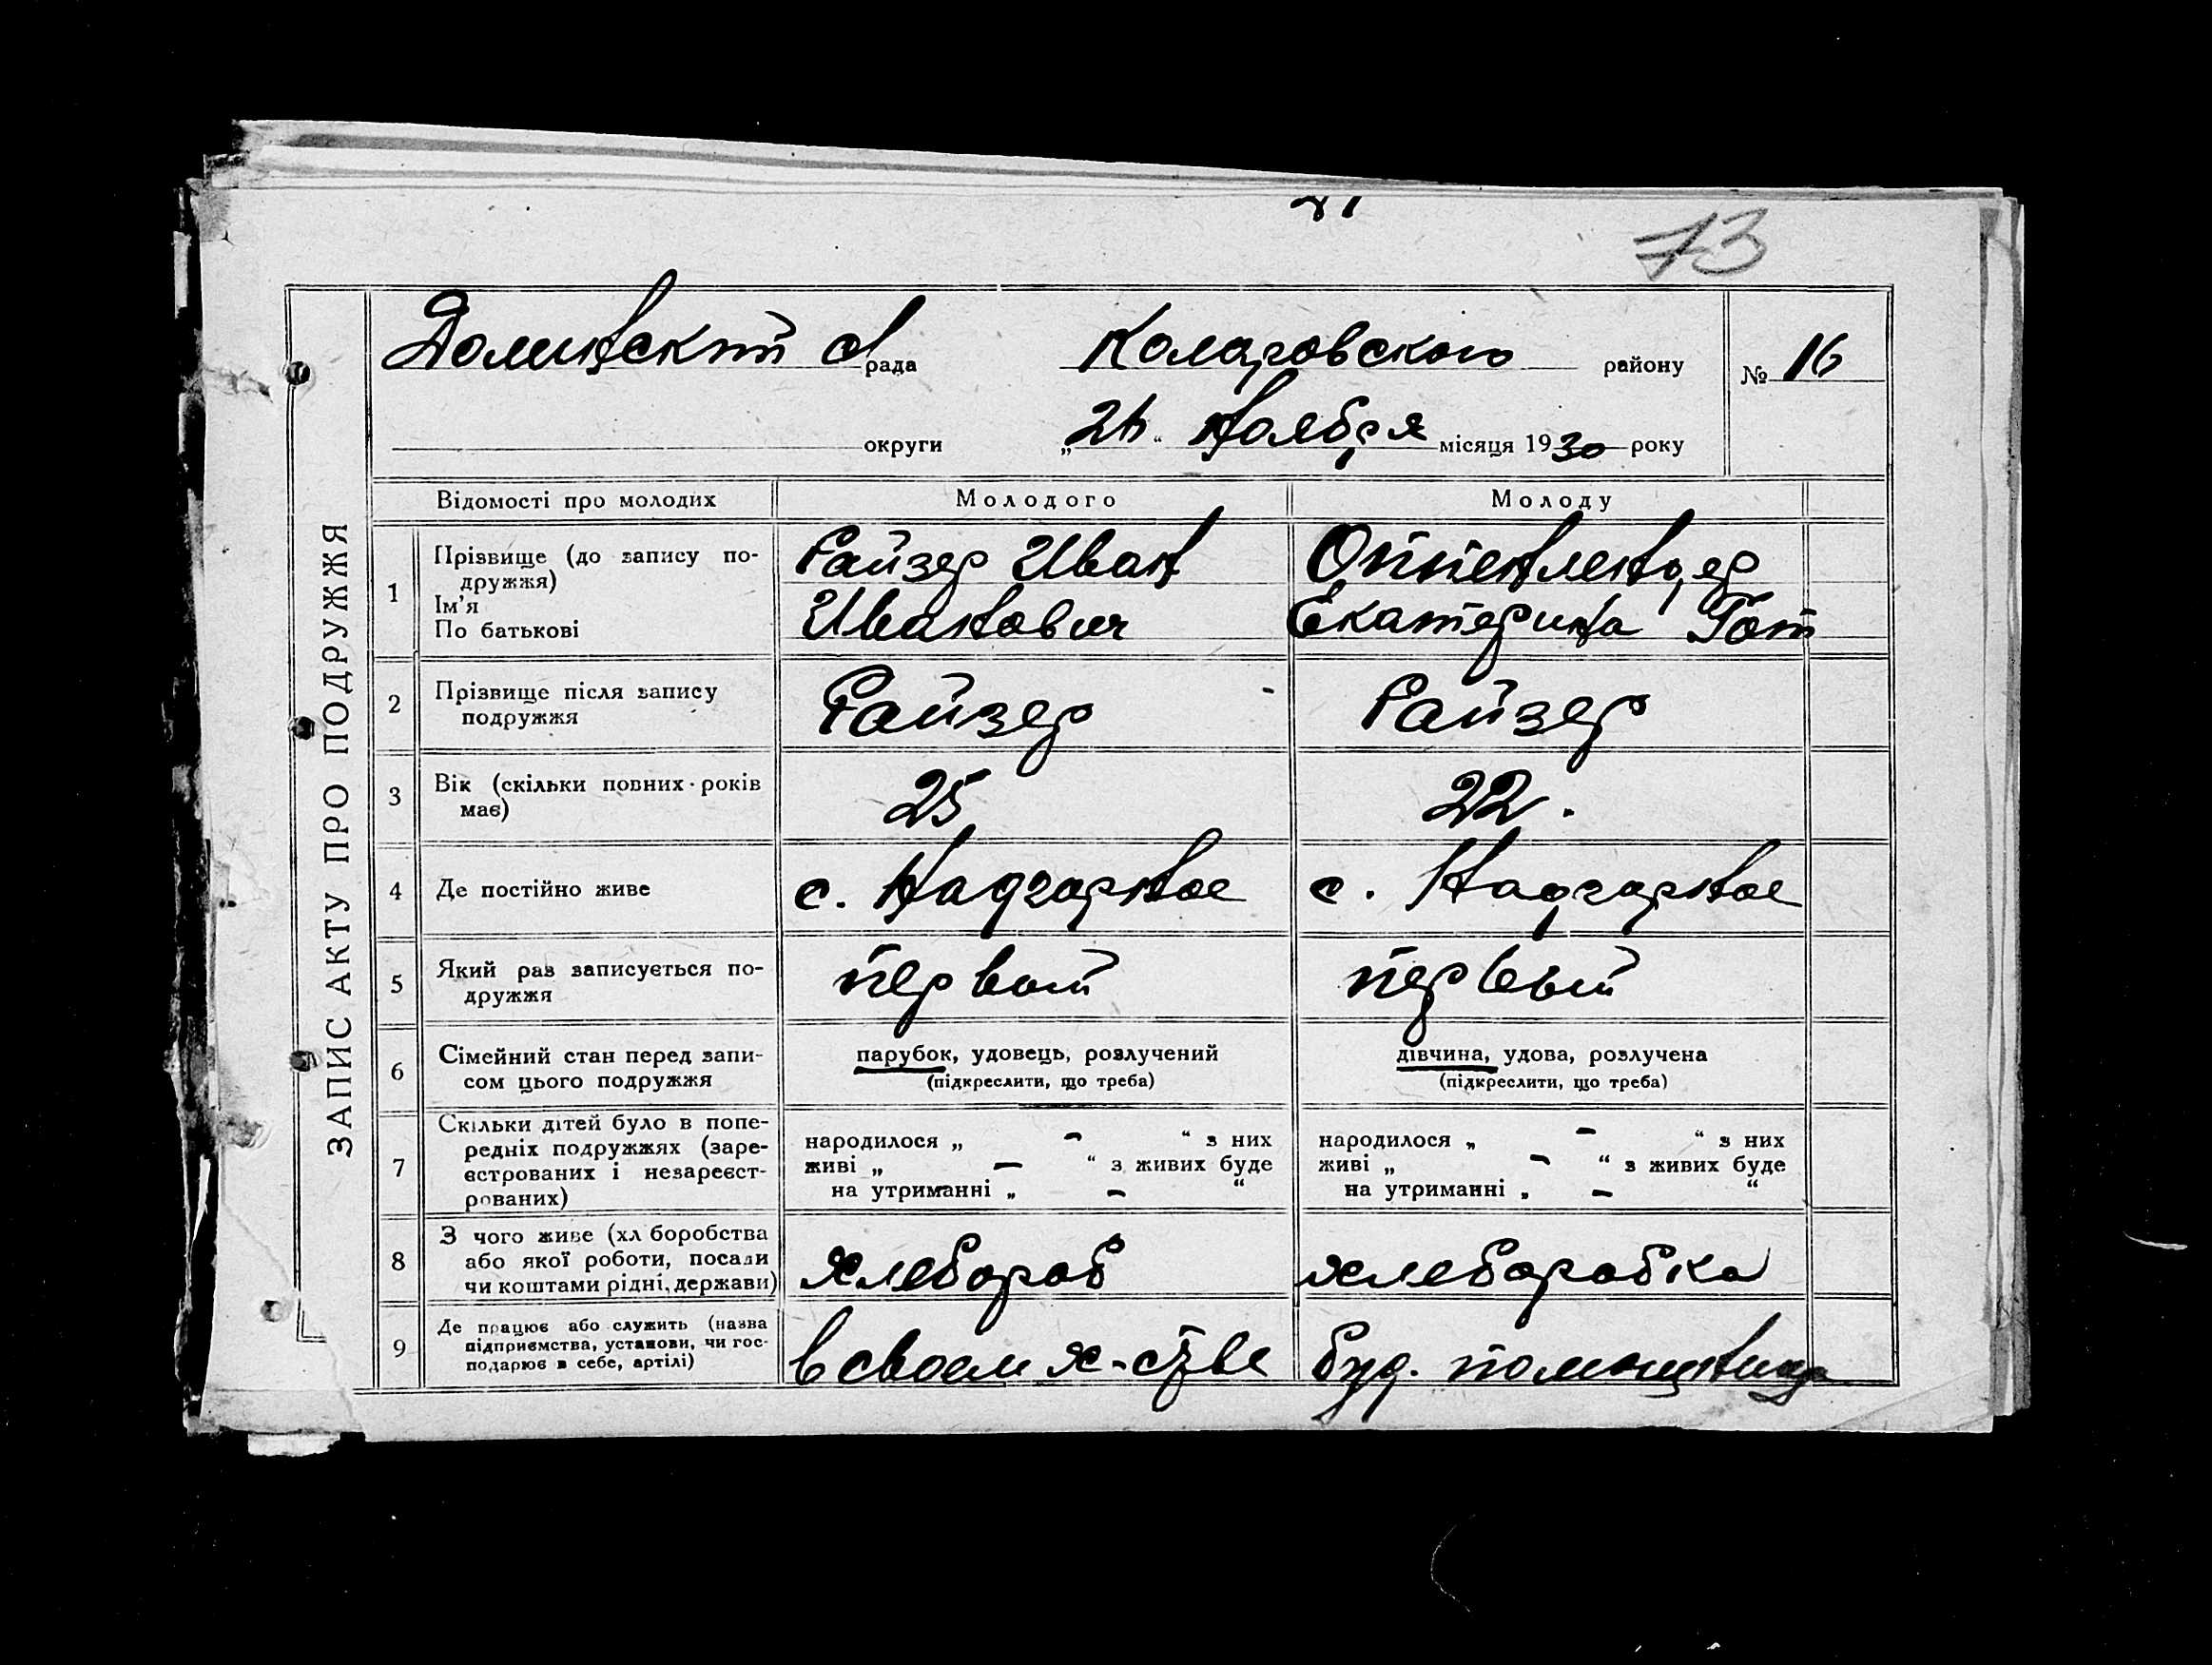 73
Долинский с/рада Коларовского району № 16
округи „26“ Ноября місяця 1930 року
ЗАПИС АКТУ ПРО ПОДРУЖЖЯ
Відомості про молодих Молодого Молоду
1 Прізвище (до запису по-
дружжя)
Ім'я
По батькові
Райзер Иван
Иванович
Оппенлендер
Екатерина Гот
2 Прізвище після запису
подружжя
Райзер Райзер
3 Вік (скільки повних років
має)
25 22.
4 Де постійно живе с. Надгорное с. Надгорное
5 Який раз записується по-
дружжя
первый первый
6 Сімейний стан перед запи-
сом цього подружжя
парубок, удовець, розлучений
(підкреслити, що треба)
дівчина, удова, розлучена
(підкреслити, що треба)
7 Скільки дітей було в попе-
редніх подружжях (заре-
єстрованих і незареєст-
рованих)
народилося „ — “ з них
живі „ — “ з живих буде
на утриманні „ — “
народилося „ — “ з них
живі „ — “ з живих буде
на утриманні „ — “
8 З чого живе (хл боробства
або якої роботи, посади
чи коштами рідні, держави)
хлебороб хлеборобка
9 Де працює або служить (назва
підприємства, установи, чи гос-
подарює в себе, артілі)
в своем х-стве буд. помощница